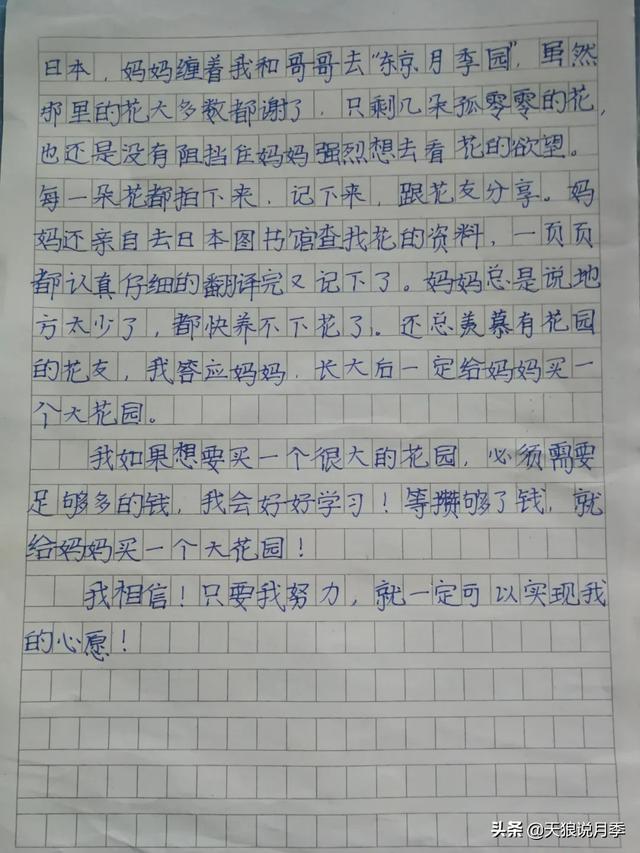 日本，妈妈缠着我和哥哥去“东京月季园”，虽然
那里的花大多数都谢了，只剩几朵孤零零的花，
也还是没有阻挡住妈妈强烈想去看花的欲望。
每一朵花都拍下来，记下来，跟花友分享。妈
妈还亲自去日本图书馆查找花的资料，一页页
都认真仔细的翻译完又记下了。妈妈总是说地
方太少了，都快养不下花了。还总羡慕有花园
的花友，我答应妈妈，长大后一定给妈妈买一
个大花园。
我如果想要买一个很大的花园，必须需要
足够多的钱，我会好好学习！等攒够了钱，就
给妈妈买一个大花园！
我相信！只要我努力，就一定可以实现我
的心愿！
头条 @天狼说月季